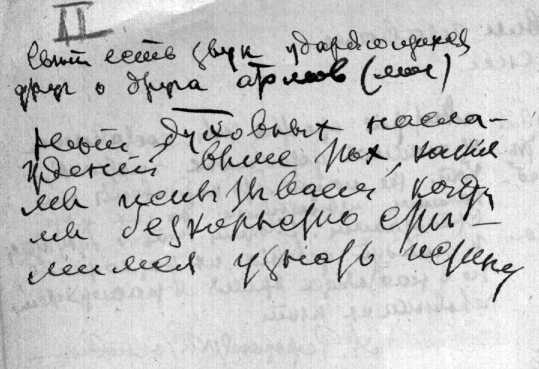 II
есть звук ударяющихся
друг о друга атомов
духовных насла-
ждений выше тех, какия
мы испытываем когда
мы безкорыстно стре-
мимся узнать истину